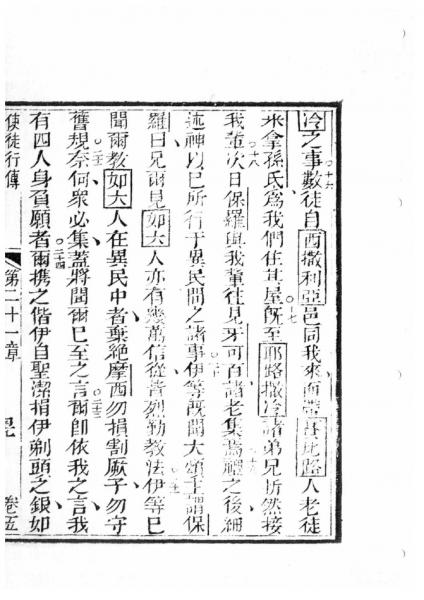 冷之事○十六數徒自西撒利亞邑同我來面帶
人老徒
來拿孫氏爲我們住其屋○十七旣至耶路撒冷諸弟兄忻然接
我○十八輩次日保羅與我輩徃見牙可百諸老集焉禮之後細
述神以己所行于異民間之諸事伊等旣聞大頌主謂保
羅曰兄爾見如大人亦有幾萬信從皆烈勒教法伊等已
聞爾教如大人在異民中者棄絶摩西勿捐割厥子勿守
舊規○二二奈何衆必集蓋將聞爾已至之言○二三爾卽依我之言我
有四人身負願者○二四爾携之偕伊自聖潔捐伊剃頭之銀如
使徒行傳 第二十一章 卷五